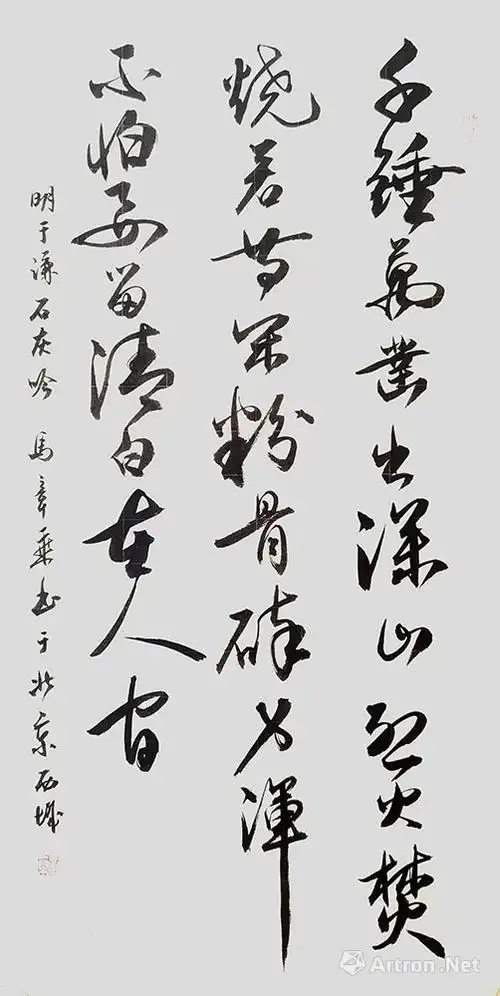 千錘萬凿出深山烈火焚
烧若等闲粉骨碎身渾
不怕要留清白在人间
明于謙石灰吟 馬章乘书于北京西城
Artron.Net